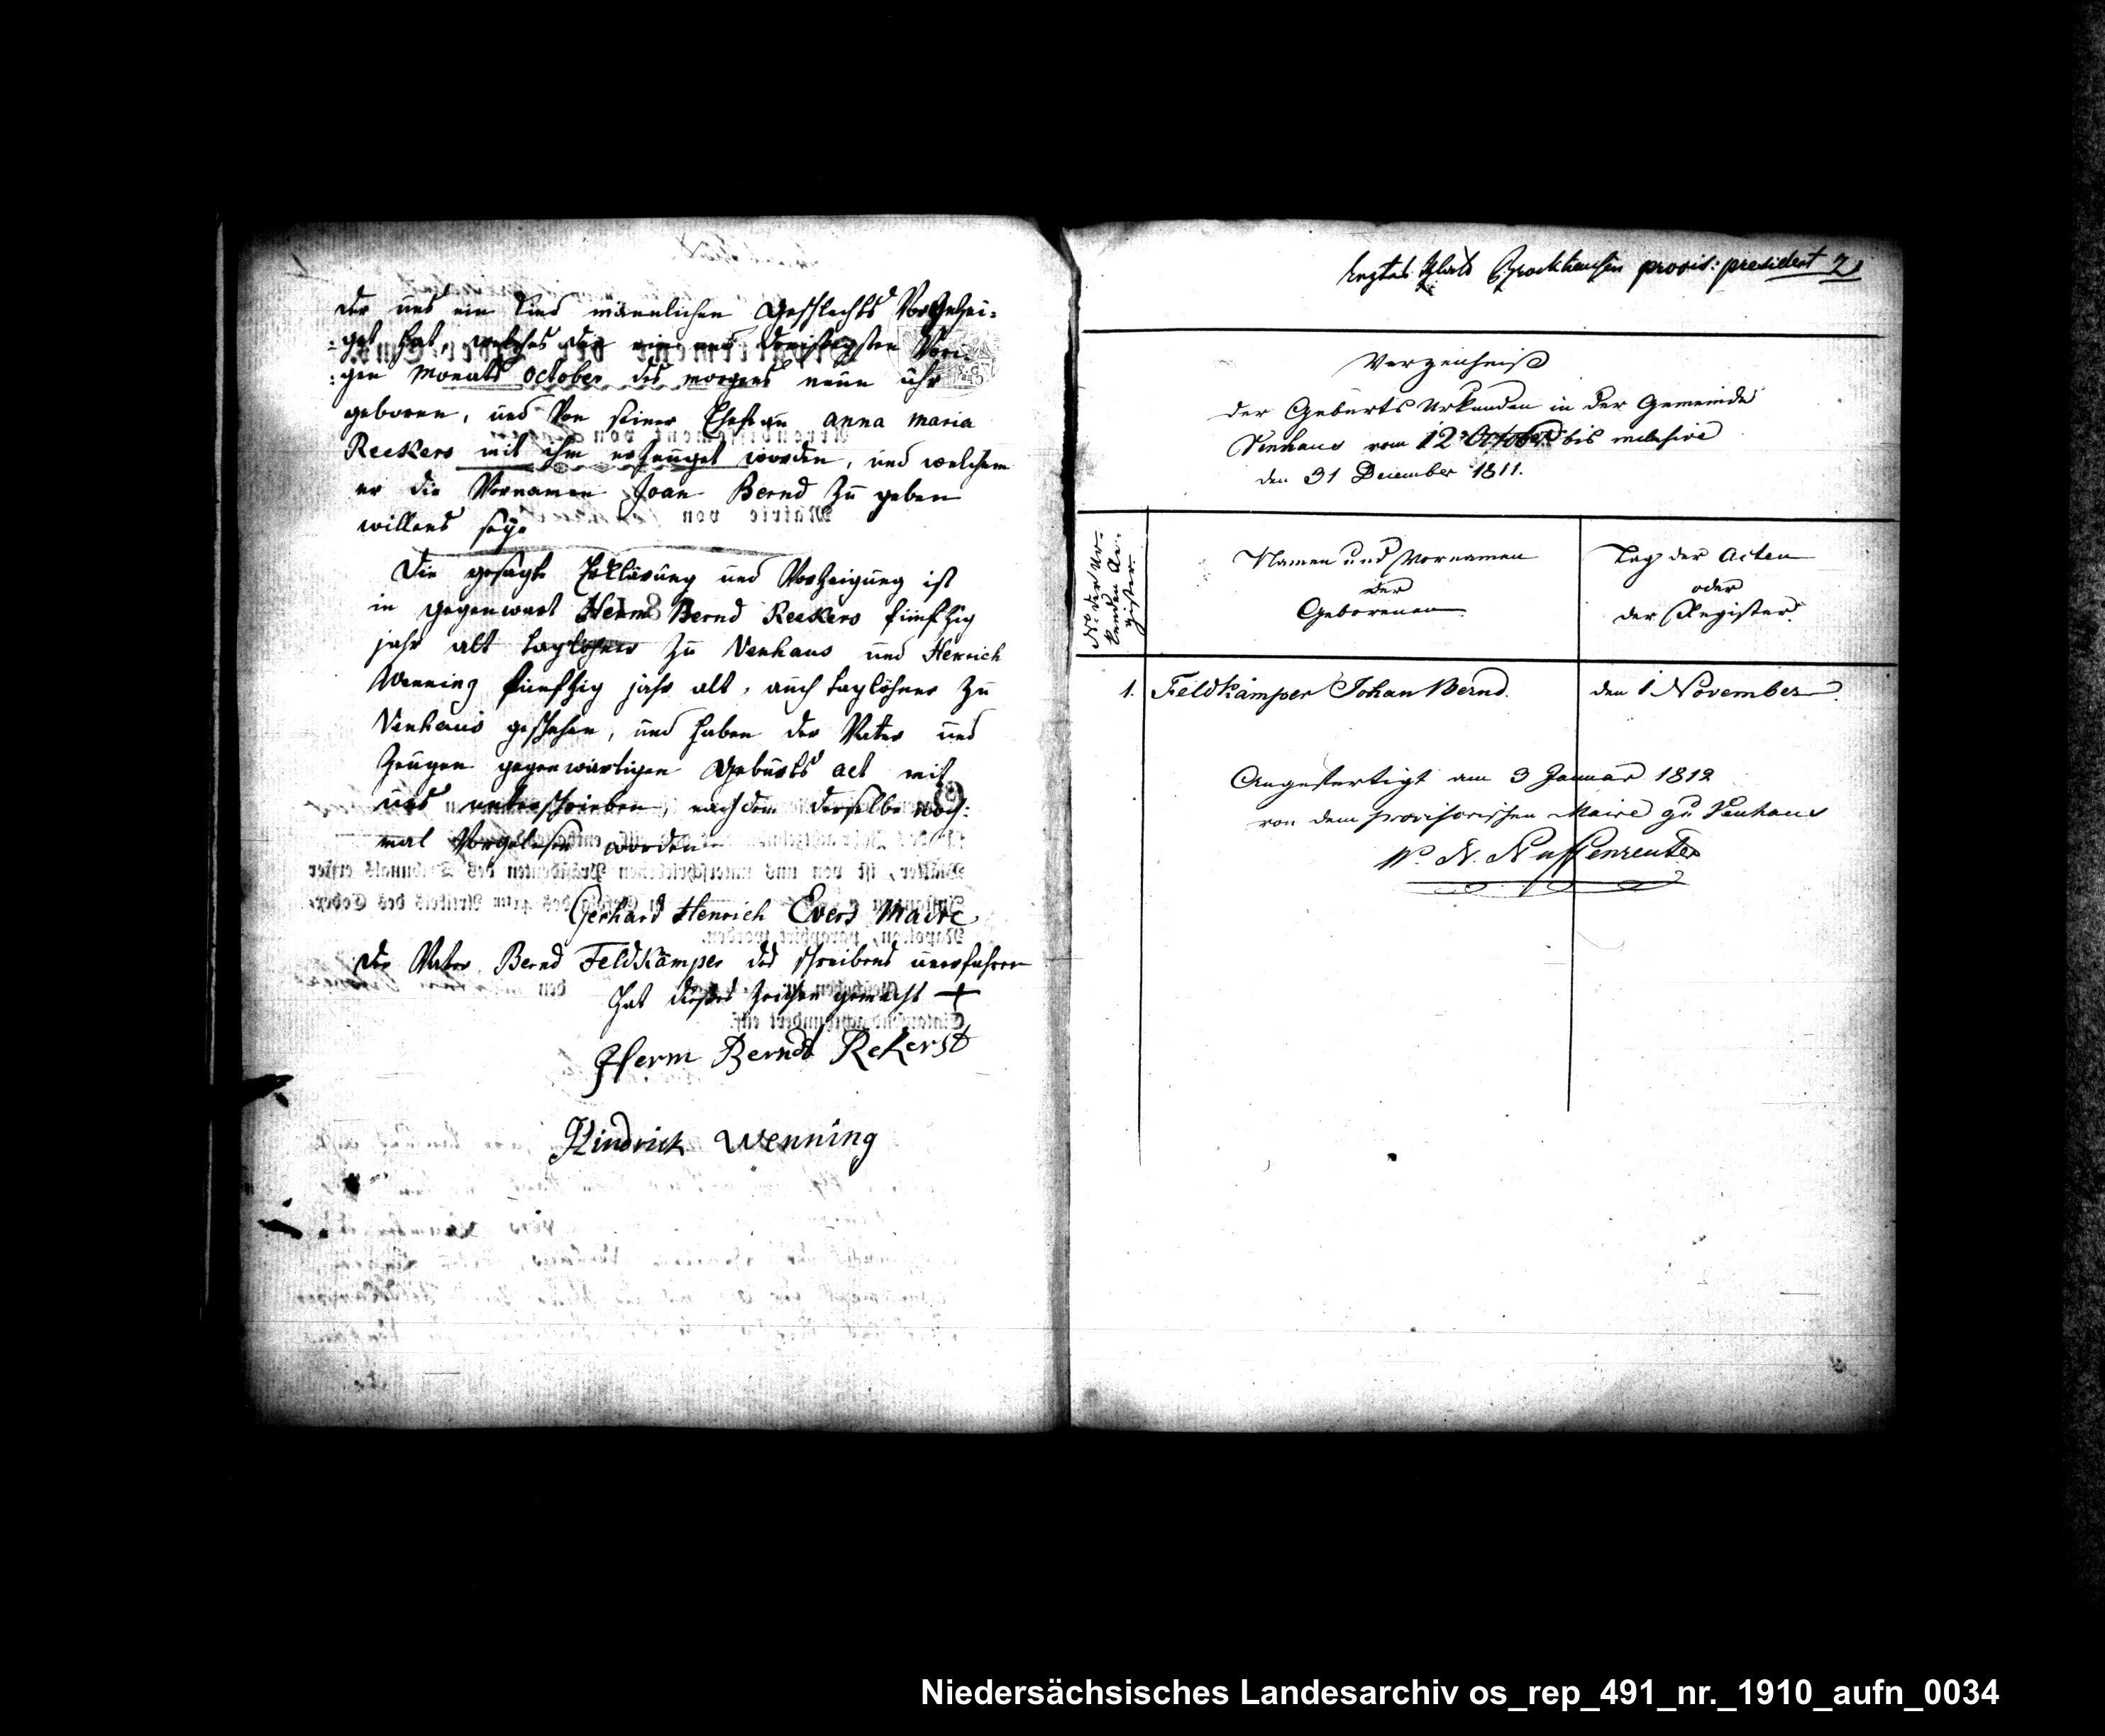 der uns ein Kind männlichen Geschlechts Vorgezei=
=get hat, welches den ein und dreisigsten Vori=
=gen Monats October des morgens neün ühr
geboren, und Von seiner Ehefrau anna maria
Reekers mit ihm erzeüget worden, und welchem
er die Vornamen Joan Bernd zu geben
willens seye
Die gesagte Erklärüng und Vorzeigüng ist
in gegenwart Herm Bernd Reekers fünfzig
jahr alt taglöhner zu Venhaus und Henrich
Wenning fünfzig jahr alt, auch taglöhner zu
Venhaus geschehen, und haben der Vater und
Zeugen gegenwärtigen Gebürts act mit
uns unterschrieben, nachdem derselbe noch=
mal Vorgelesen worden
Gerhard Henrich Evers Maire
der Vater Bernd Feldkämper des schreibens unerfahren
hat dieses Zeichen gemacht +
Herm Bernd Rekerst
Hindrick Wenning
letztes Blatt Brockhausen provis: president 2
Verzeichniß
der Geburts Urkunden in der Gemeinde
Venhaus vom 12 October bis inclusive
den 31 December 1811.
No der Ur-
kunden Re-
gister.
Namen und Vornamen
der
Geborenen
Tag der Acten
oder
der Register.
1. Feldkämper Johan Bernd. den 1 November.
Angefertigt am 3 Januar 1812
von dem provisorischen Maire zu Venhaus
Niedersächsisches Landesarchiv os_rep_491_nr._1910_aufn_0034